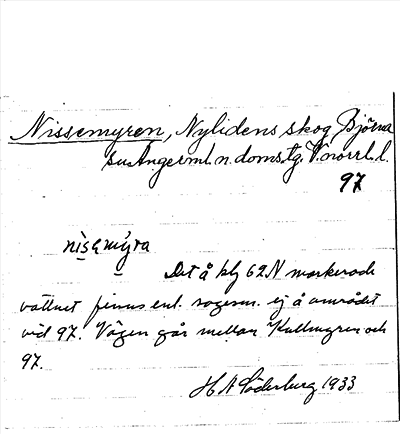 Nissemyren, Nylidens skog Björna
sn Ångerml. n. doms.tg. V.norrl. l.
97
nìsemýra
Det å blg 62N markerade
vattnet finnes enl. sagesm. ej å området
vid 97. Vägen går mellan Kullmyren och
97.
H A Söderberg 1933